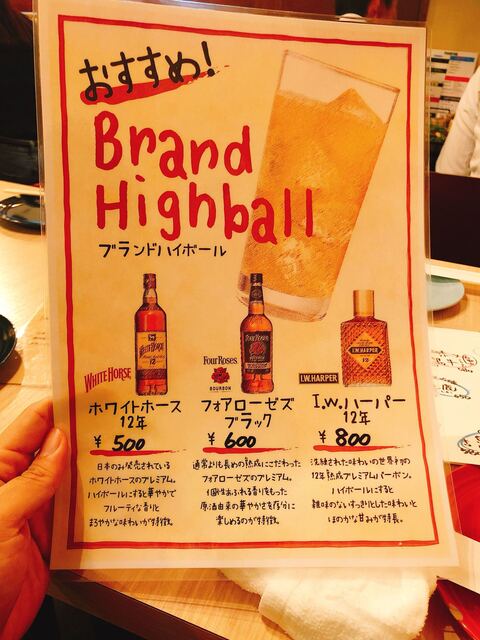 おすすめ!
Brand
Highball
ブランドハイボール
WHITE HORSE
ホワイトホース
12年
¥ 500
日本のみ発売されている
ホワイトホースのプレミアム。
ハイボールにすると華やかで
フルーティな香りと
まろやかな味わいが特徴。
Four Roses
BOURBON
フォアローゼズ
ブラック
¥ 600
通常よりも長めの熟成にこだわった
フォアローゼズのプレミアム。
個性あふれる香りをもった
原酒由来の華やかさを存分に
楽しめるのが特徴。
I.W.HARPER
I.W.ハーパー
12年
¥ 800
洗練された味わいの世界初の
12年熟成プレミアムバーボン。
ハイボールにすると
雑味のないすっきりとした味わいと
ほのかな甘みが特長。